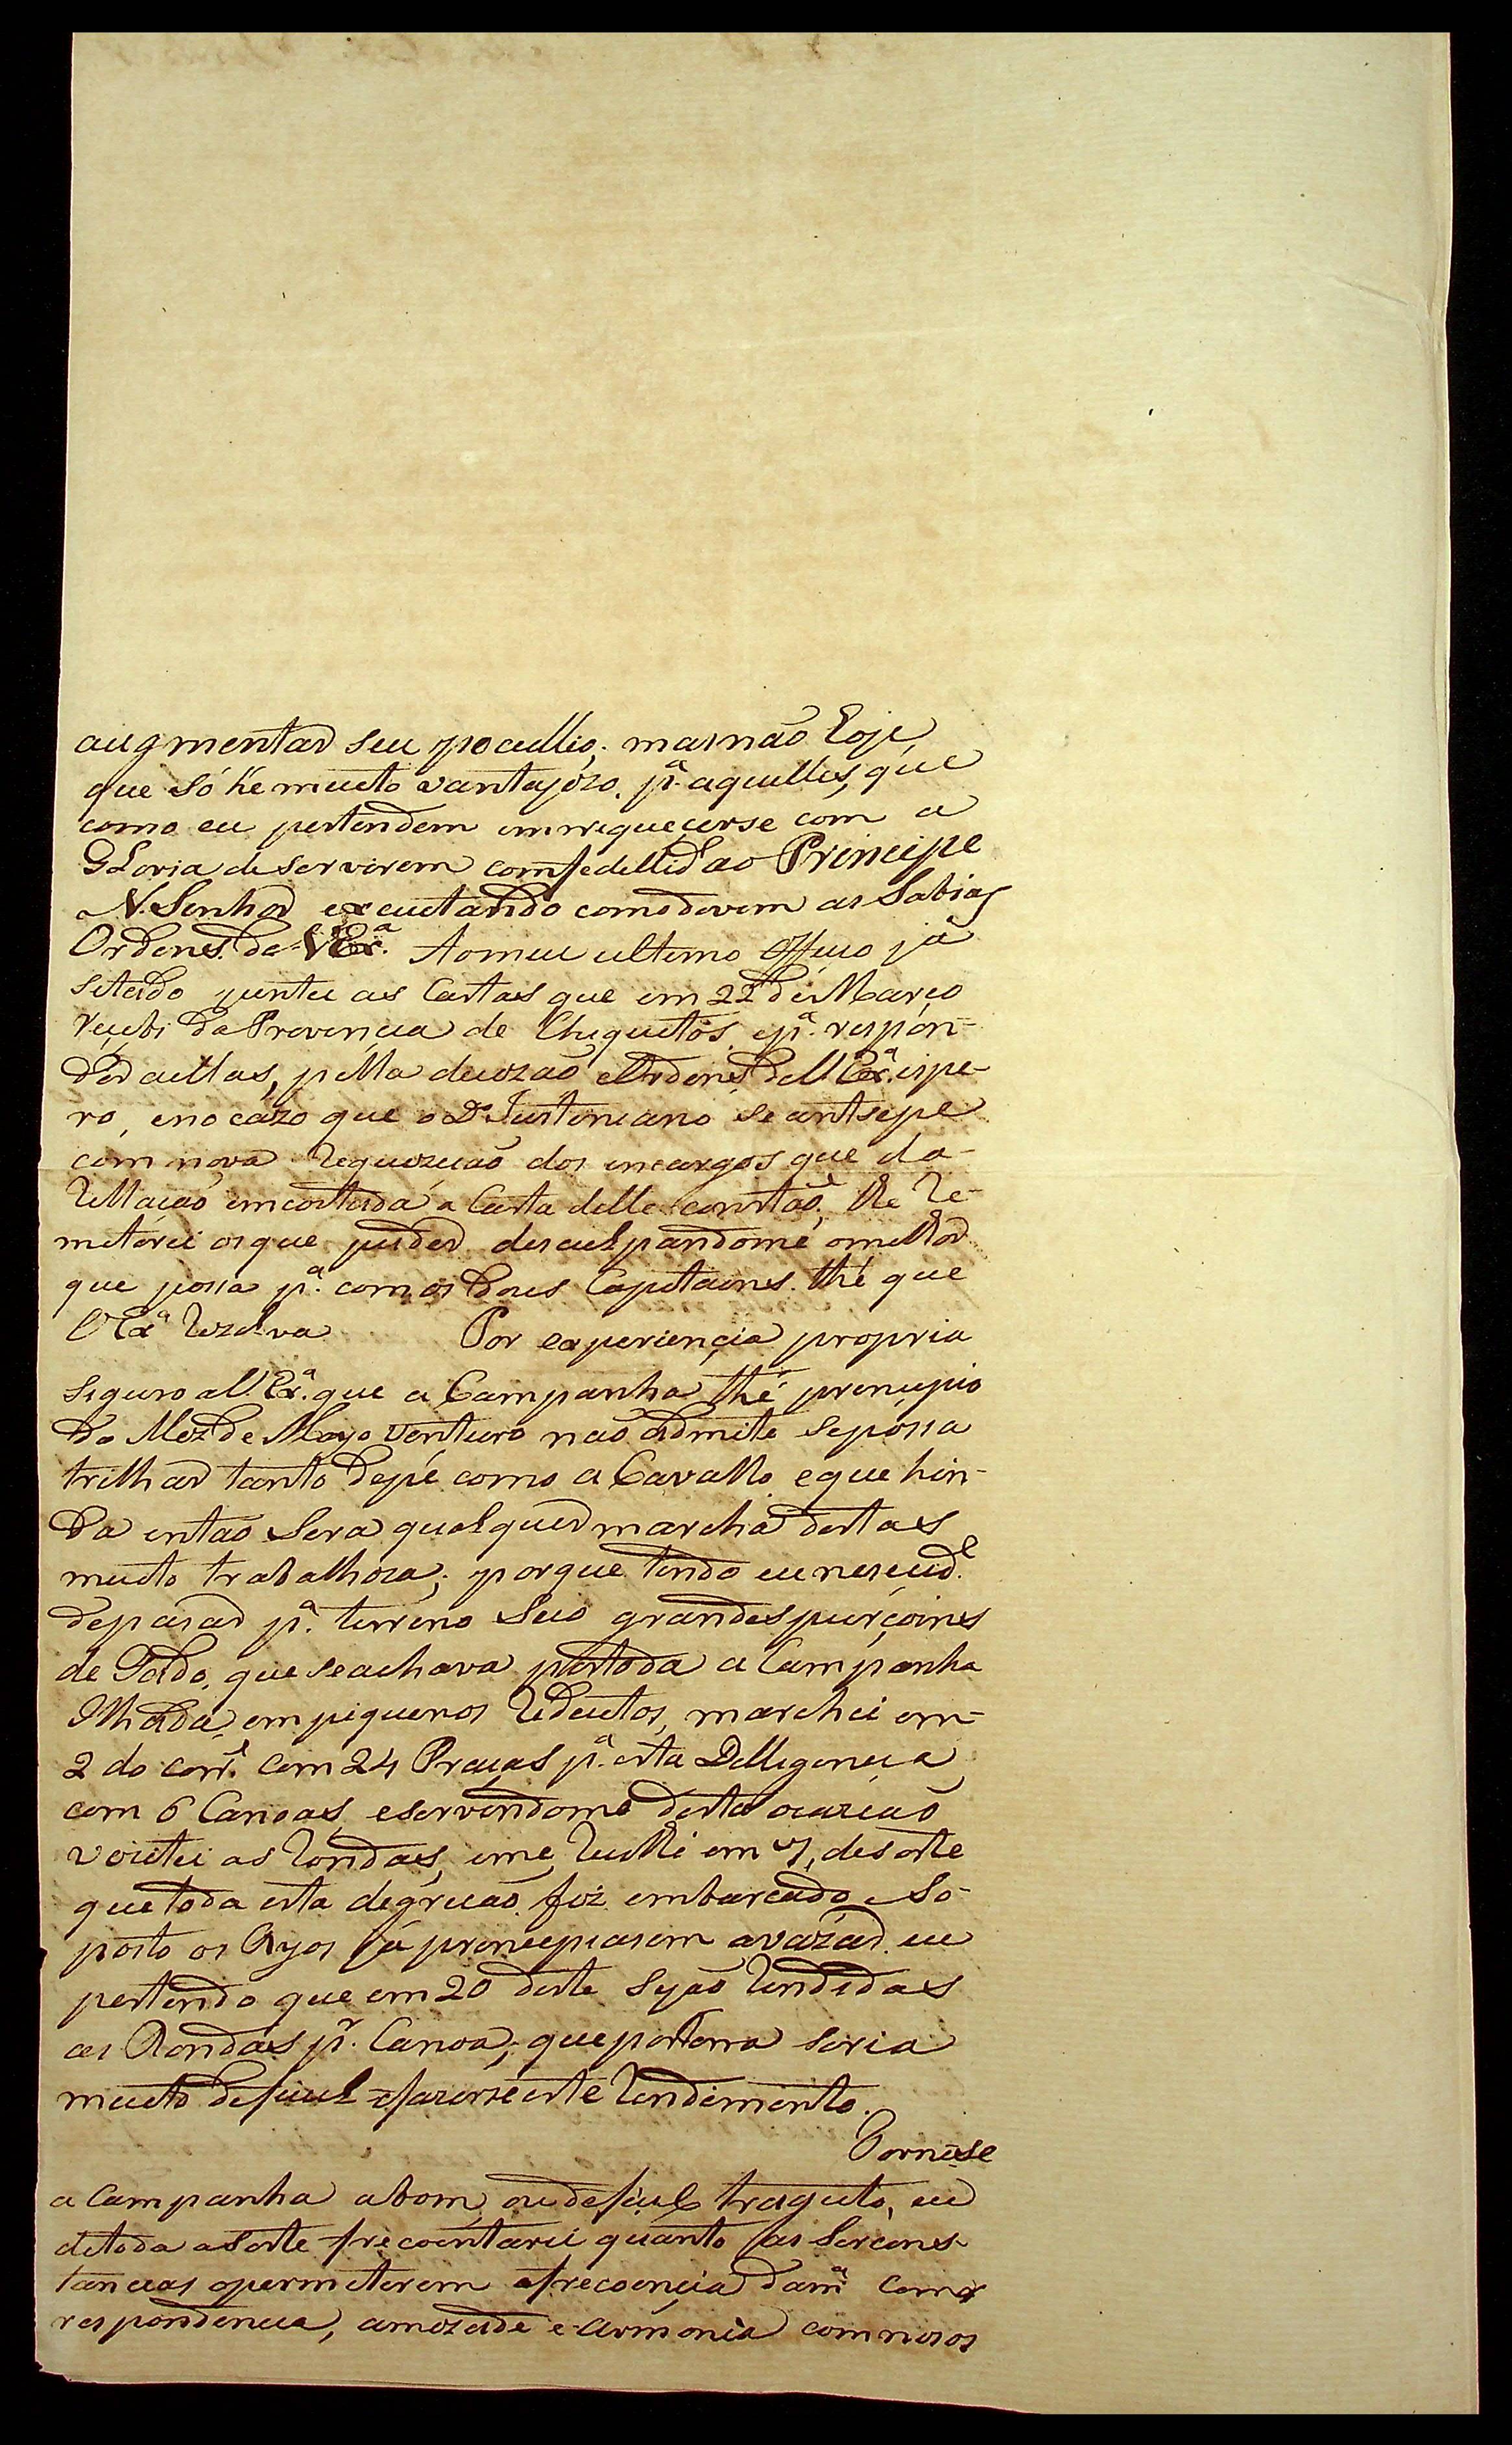 augmentar seu pecullio; mas não hoje,
que só hé muito vantajózo. pª. aquelles, que
como eu pertendem inrriqueçerse com a
Gloria de servirem com fedellid.e ao Principe
N. Senhor executando como devem as Sabias
Ordens. de V Exª. Ao meu ultimo Officio já
Sitado juntei as Cartas que em 22 de Março
reçebi da Provincia de Chiquitos, e pª. respon-
der aellas, pella decizaõ e Ordens de V. Exª. espe-
ro, e no cazo que o Dor Justiniano se antsepe
com nova Requiziçaõ dos encargos que da
Rellaçaõ emcostada a Carta delle constaõ, lhe Re-
meterei os que puder desculpandome o melhor
que possa pª. com os dous Capitains. thé que
V Exª Rezolva Por experiençia propria
Siguro a V. Exª. que a Campanha thé prencipio
do Mez de Mayo venturo naõ admite se possa
trilhar tanto de pé como a Cavallo e que hin-
da entaõ Sera qual quer marcha destas
muito trabalhoza; porque tendo eu neseçid.e
de pasar pª. terreno Seco grandes purçoins
de Gado, que se achava por toda a Campanha
Ilhada, em piquenos Redutos, marchei em
2 do corr.e com 24 Praças pª. esta Delligencia
com 6 Canoas, e servindome desta ocaziaõ
vezitei as Rondas, e me Recolhi em 7, de sorte
que toda esta degreçaõ fiz embarcado, So-
posto os Agoas já prencipiasem avazar. eu
pertendo que em 20 deste Sejaõ Rendidas
as Rondas pr. Canoa; que por terra seria
muito defiçil fazerse este Rendimento.
Tornese
a Campanha a bom, ou defiçil tragéto, eu
de toda a Sorte frecoentarei quanto as Sircons-
tancias o permeterem a frecoençia da mª. Cor
respondencia, amozade e armonia com nosos